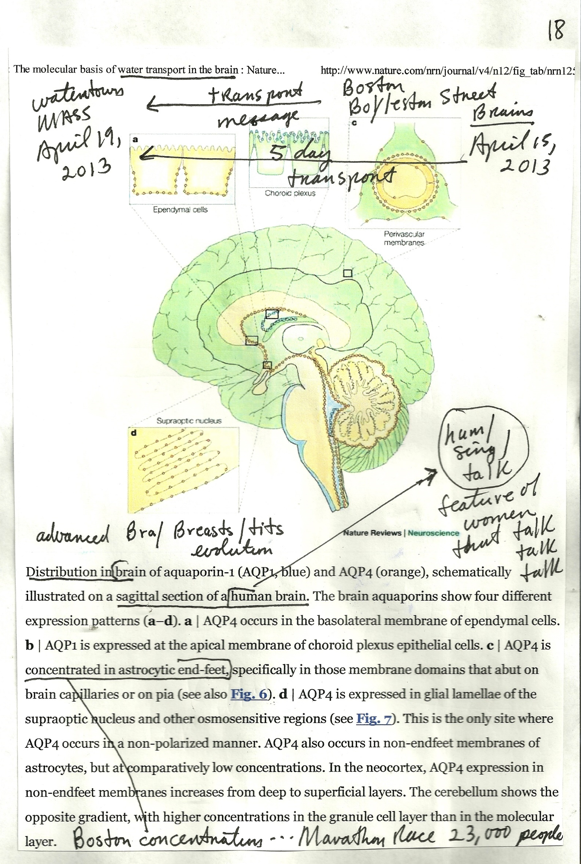 18
The molecular basis of water transport in the brain : Nature... http://www.nature.com/nrn/journal/v4/n12/fig_tab/nrn12
watertown MASS April 19, 2013
transport message
Boston Boylston Street
Brains
April 15, 2013
5 day transport
a
c
Ependymal cells
Choroid plexus
Perivascular membranes
Supraoptic nucleus
d
hum/ sing/ talk
feature of women that talk talk talk
advanced Bra/ Breasts/tits evolution
Nature Reviews | Neuroscience
Distribution in brain of aquaporin-1 (AQP1, blue) and AQP4 (orange), schematically
illustrated on a sagittal section of a human brain. The brain aquaporins show four different
expression patterns (a–d). a | AQP4 occurs in the basolateral membrane of ependymal cells.
b | AQP1 is expressed at the apical membrane of choroid plexus epithelial cells. c | AQP4 is
concentrated in astrocytic end-feet, specifically in those membrane domains that abut on
brain capillaries or on pia (see also Fig. 6). d | AQP4 is expressed in glial lamellae of the
supraoptic nucleus and other osmosensitive regions (see Fig. 7). This is the only site where
AQP4 occurs in a non-polarized manner. AQP4 also occurs in non-endfeet membranes of
astrocytes, but at comparatively low concentrations. In the neocortex, AQP4 expression in
non-endfeet membranes increases from deep to superficial layers. The cerebellum shows the
opposite gradient, with higher concentrations in the granule cell layer than in the molecular
layer. Boston concentration --- Marathon Race 23,000 people